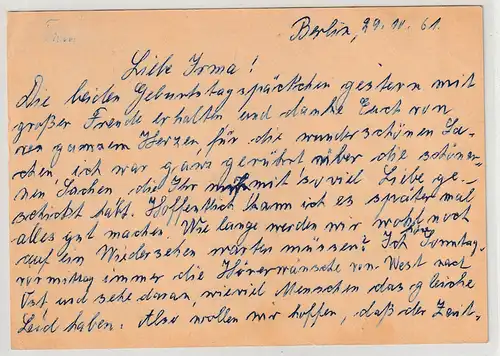 Berlin, 29.10.61.
Liebe Irma!
Die beiden Geburtstagspäckchen gestern mit
großer Freude erhalten und danke Euch von
ganzem Herzen für die wunderschönen Sa-
chen ich war ganz gerührt über die schöne-
nen Sachen die Ihr mit so viel Liebe ge-
schickt habt. Hoffentlich kann ich es später mal
alles gut machen. Wie lange werden wir wohl noch
auf ein Wiedersehen warten müssen? Ich Sonntag
vormittag immer die Hörerwünsche von West nach
Ost und sehe daran, wieviel Menschen das gleiche
Leid haben. Also wollen wir hoffen, daß der Zeit-